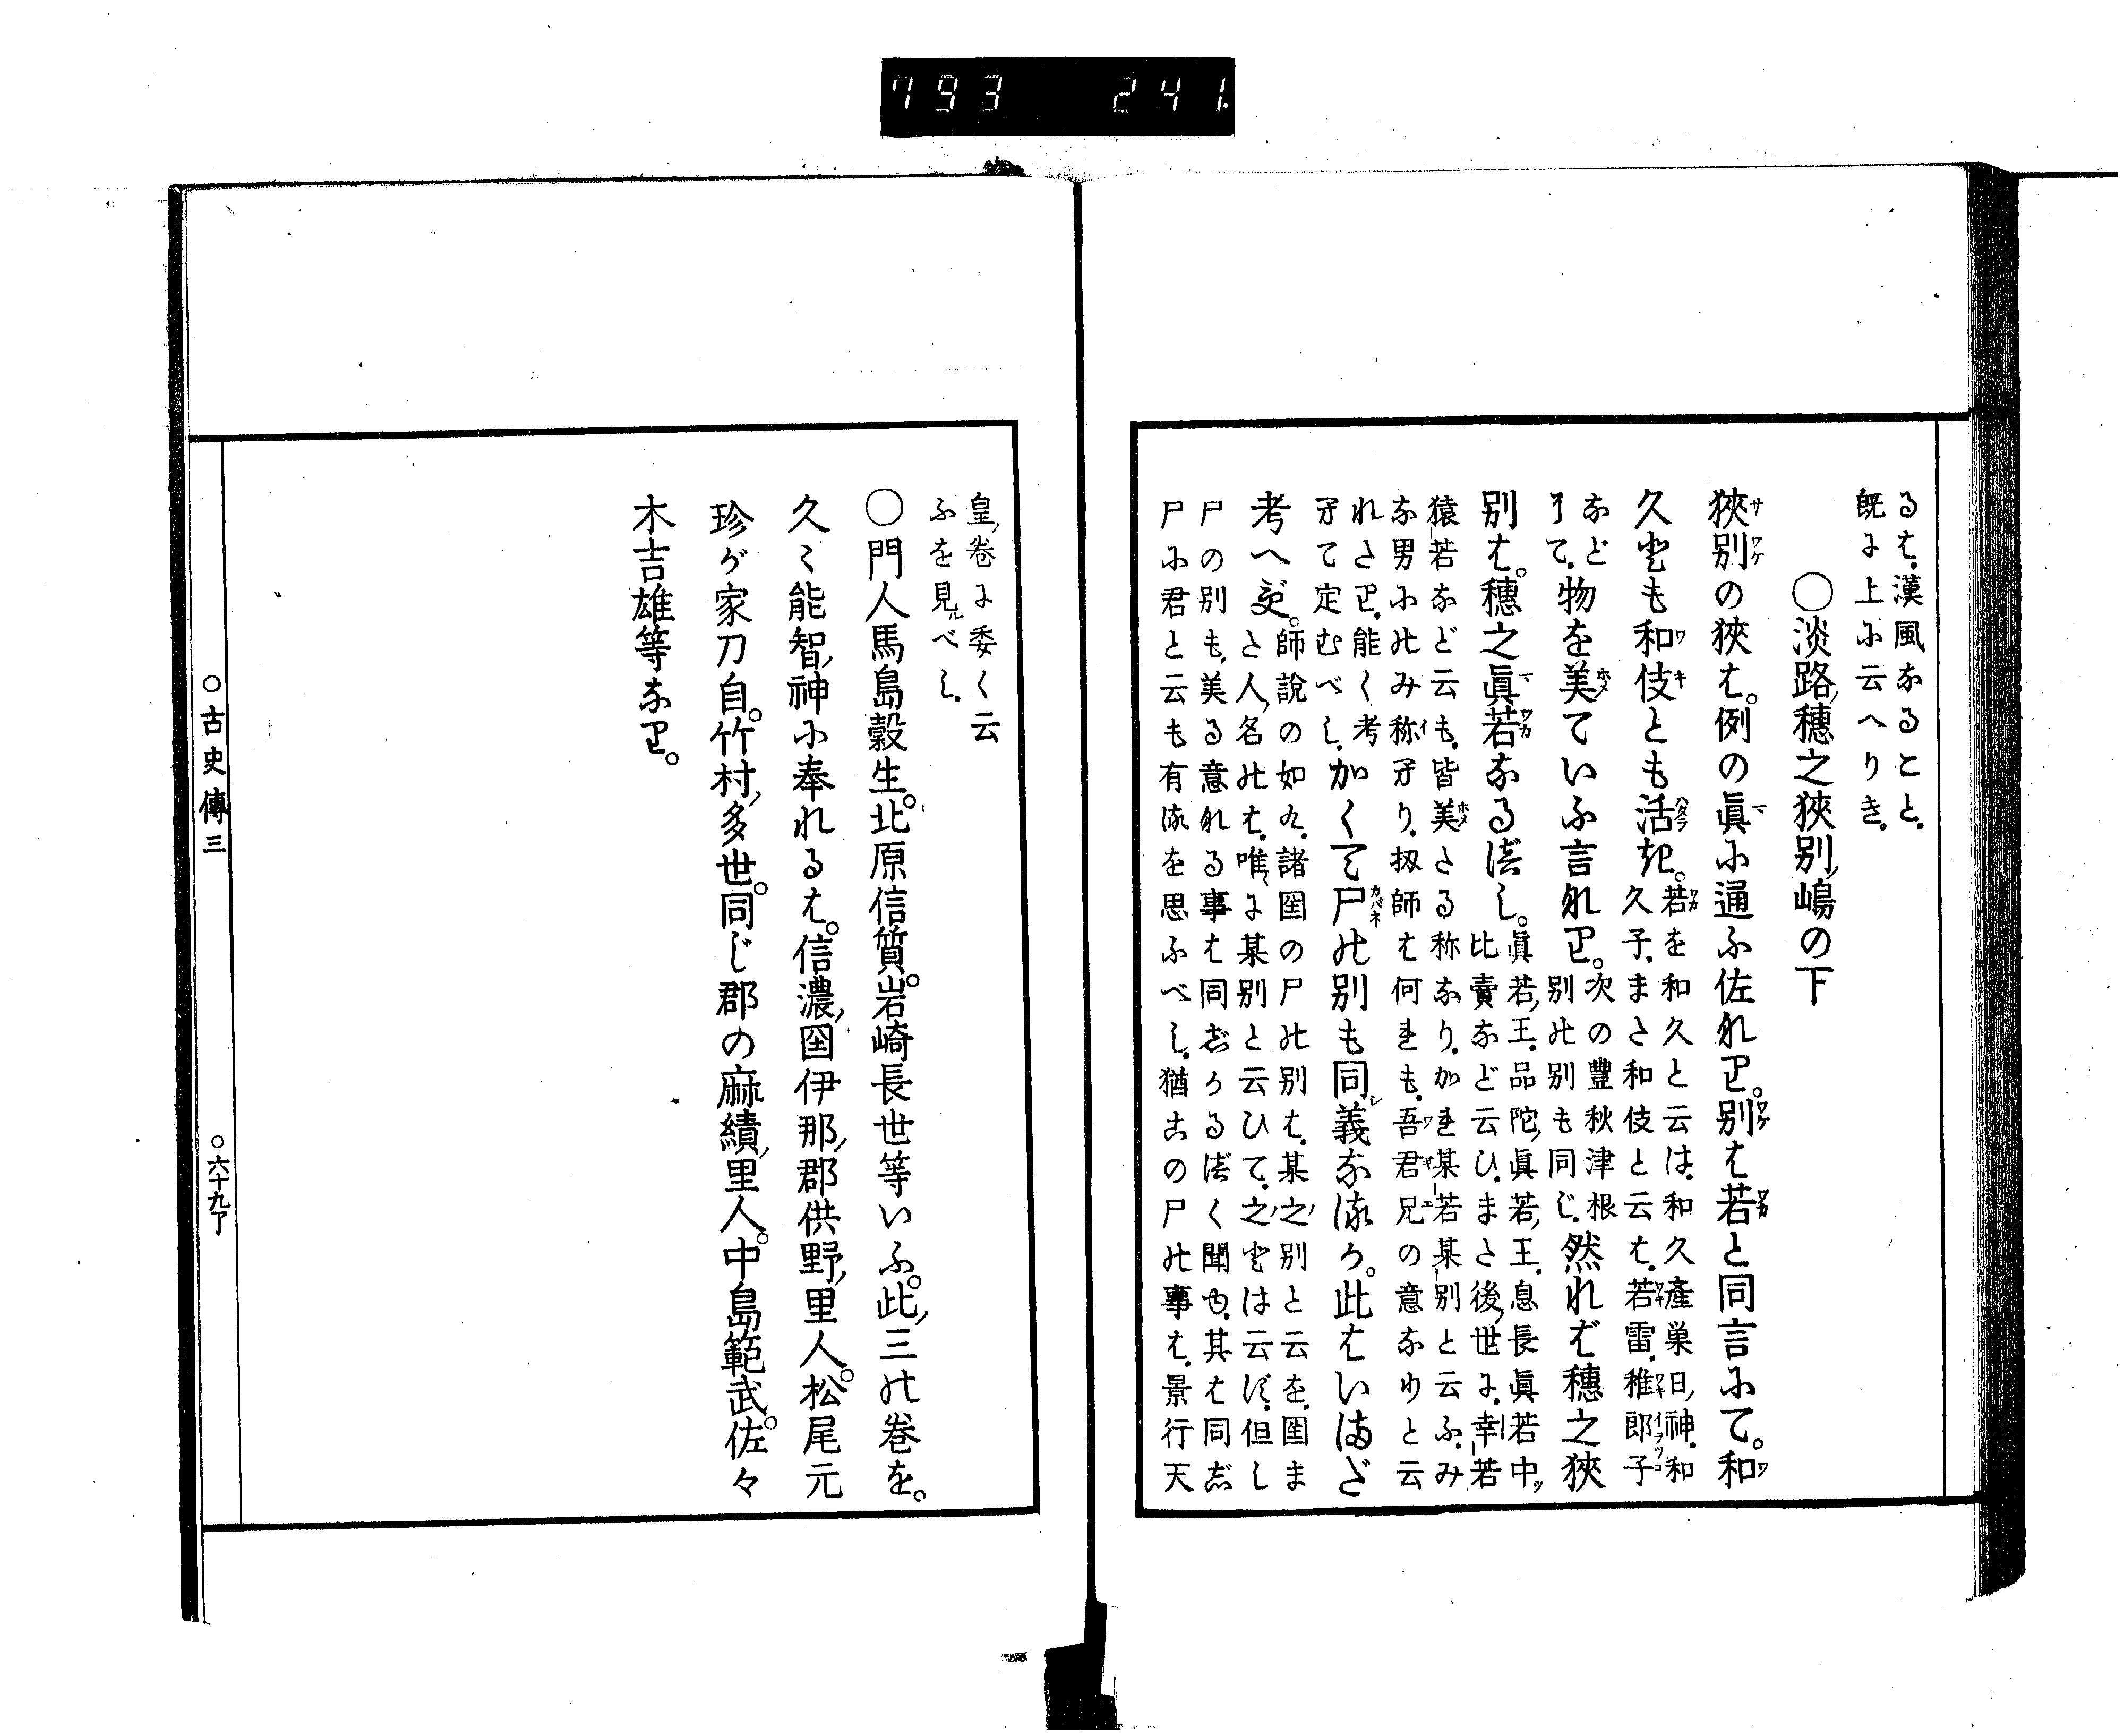 793 241
るは、漢風なること、
既に上に云へりき、
○淡路ノ穗之狹別ノ嶋の下
狹別の狹は。例の眞に通ふ佐なり。別は若と同言にて。和
久とも和伎とも活き。若を和久と云は、和久產巢日ノ神、和
久子、また和伎と云は、若雷、稚郎子
など
有て、物を美ていふ言なり。次の豐秋津根
別の別も同じ、然れば穗之狹
別は。穗之眞若なるべし。眞若ノ王、品陀ノ眞若ノ王、息長眞若中ツ
比賣など云ひ、また後ノ世に、幸若
猿若なども云も、皆美たる称なり、かれ某若某別と云ふ、み
な男にのみ称有り、扨師は何れも、吾君兄の意なりと云
れたり、能く考
有て定むべし、かくて尸の別も同義なるか。此はいまだ
考へず。師說の如く、諸国の尸の別は、某ノ之別と云を、国ま
た人ノ名のは、唯に某別と云ひて、之とは云ず、但し
尸の別も、美る意なる事は同じかるべく聞ゆ、其は同じ
尸に君と云も有るを思ふべし、猶この尸の事は、景行天
皇ノ卷に委く云
ふを見ルべし、
○門人馬島穀生。北原信質。岩崎長世等いふ。此ノ三の卷を。
久〻能智ノ神に奉れるは。信濃ノ国伊那ノ郡供野ノ里人。松尾元
珍が家刀自。竹村ノ多世。同じ郡の麻績ノ里人。中島範武。佐々
木吉雄等なり。
○古史傳三
○六十九丁